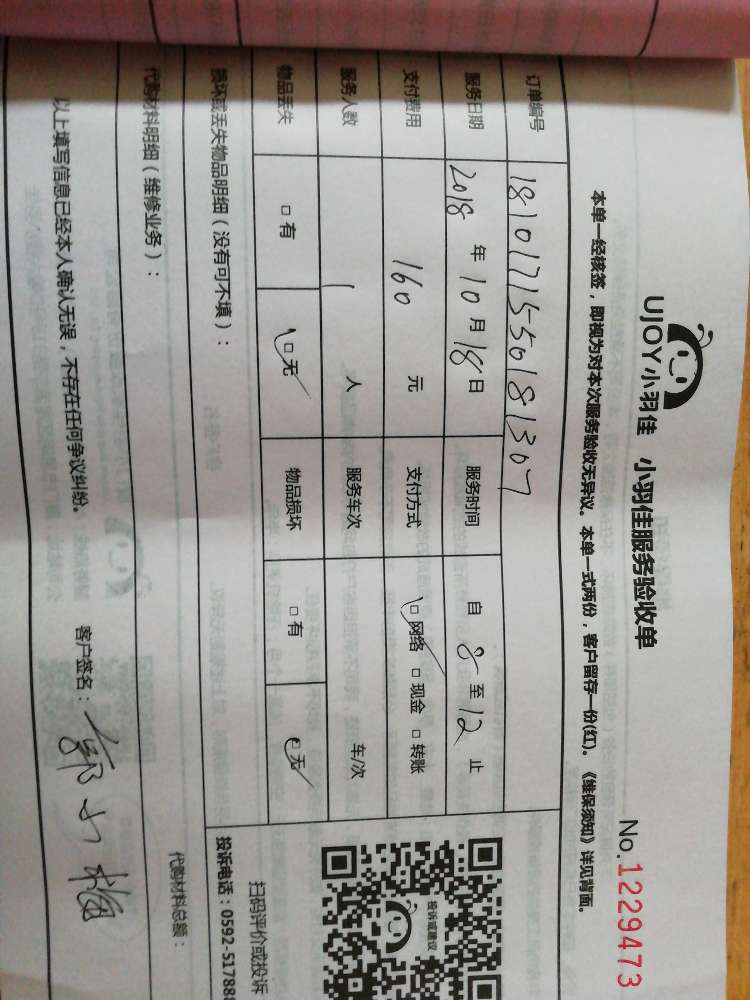 UJOY小羽佳 小羽佳服务验收单
No.1229473
本单一经核签，即视为对本次服务验收无异议。本单一式两份，客户留存一份(红)。《维保须知》详见背面。
订单编号 1810171550181307
服务日期 2018 年 10 月 18 日 服务时间 自 8 至 12 止
支付费用 160 元 支付方式 □网络 □现金 □转账
服务人数 1 人 服务车次 车/次
物品丢失 □有 □无 物品损坏 □有 □无
投诉或建议
损坏或丢失物品明细（没有可不填）：
扫码评价或投诉
投诉电话：0592-51788
代购材料明细（维修业务）：
代购材料总额：
以上填写信息已经本人确认无误，不存在任何争议纠纷。
客户签名：郭